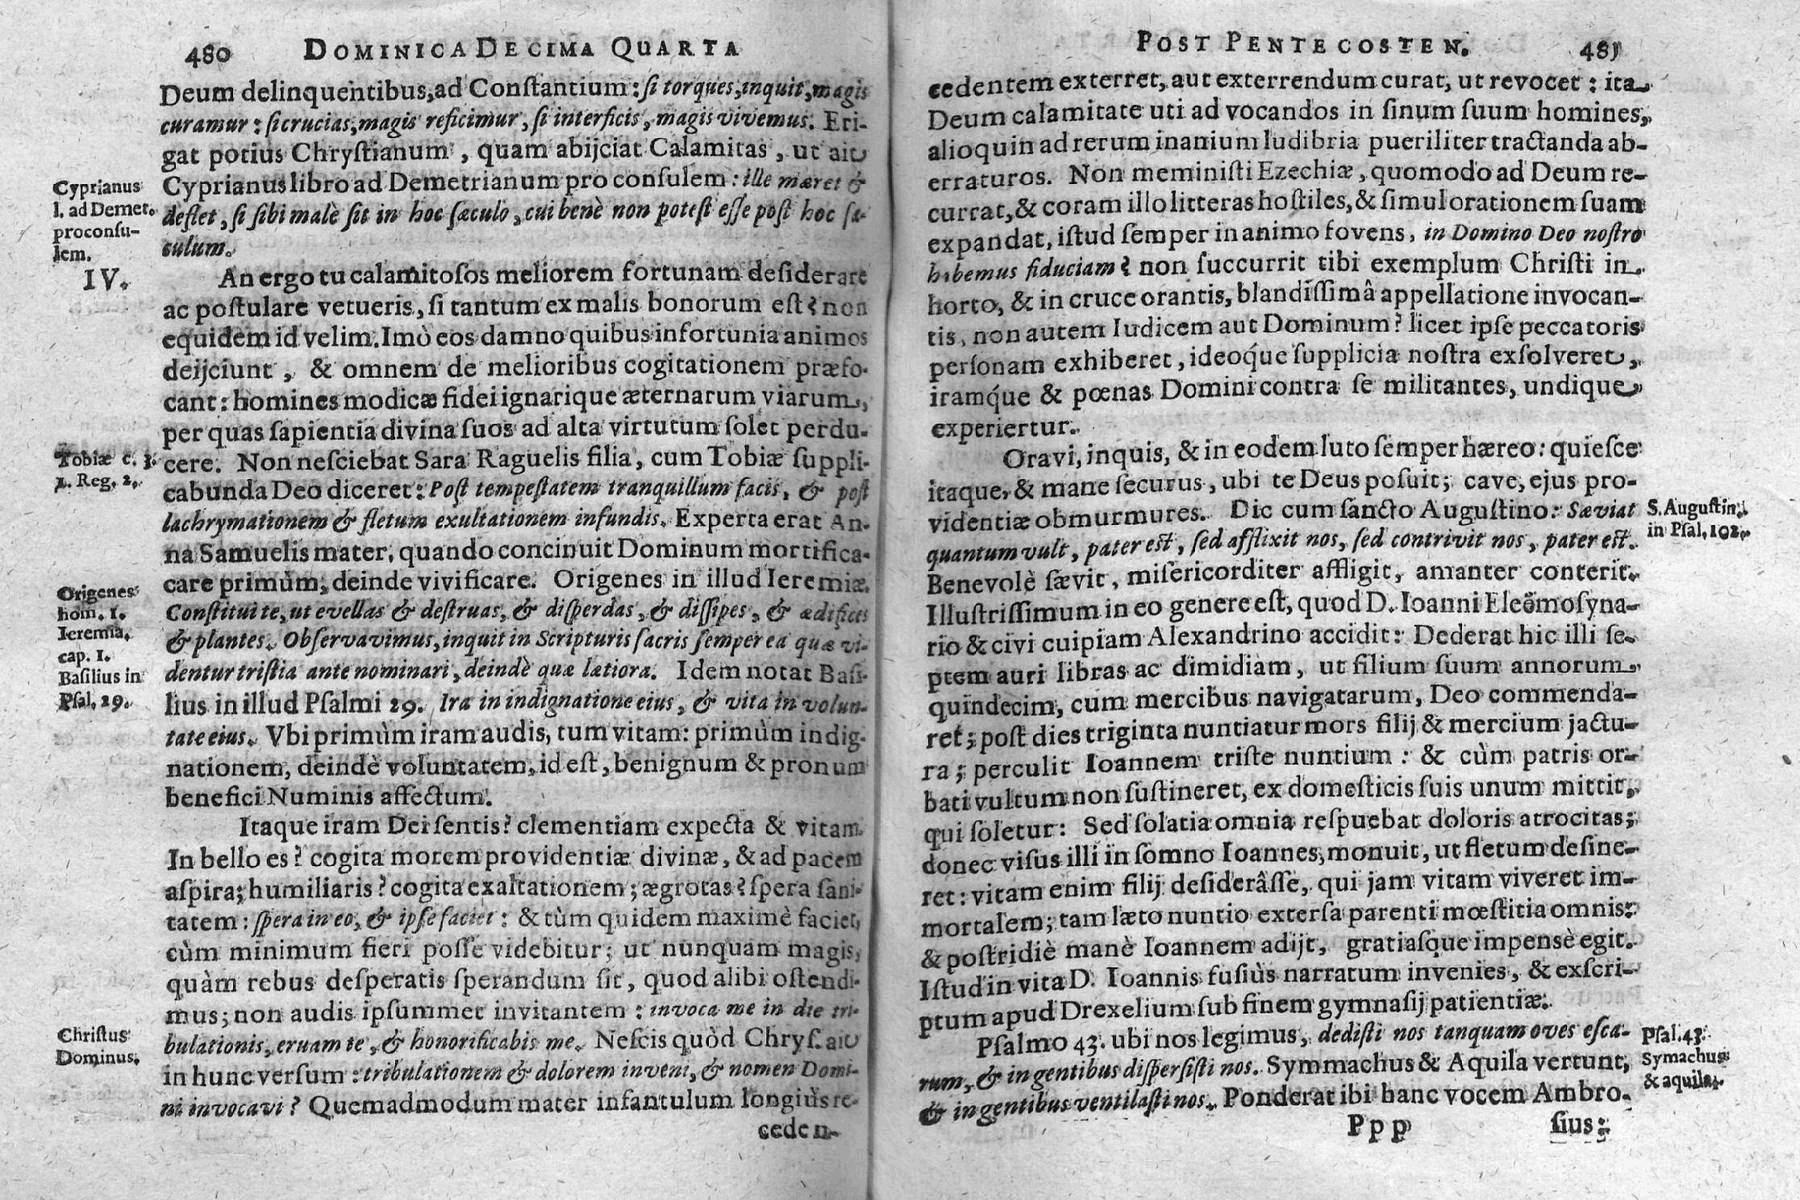 480 DOMINICA DECIMA QUARTA
Deum delinquentibus, ad Constantium: si torques, inquit, magis
curamur: si crucias, magis reficimur, si interficis, magis vivemus. Eri-
gat potius Chrystianum, quam abijciat Calamitas, ut ait
Cyprianus libro ad Demetrianum pro consulem: ille mæret &
deflet, si sibi malè sit in hoc sæculo, cui benè non potest esse post hoc sæ-
culum.
Cyprianus
l. ad Demet.
proconsu-
lem.
IV.
An ergo tu calamitosos meliorem fortunam desiderare
ac postulare vetueris, si tantum ex malis bonorum est? non
equidem id velim. Imò eos damno quibus infortunia animos
deijciunt, & omnem de melioribus cogitationem præfo-
cant: homines modicæ fidei ignarique æternarum viarum,
per quas sapientia divina suos ad alta virtutum solet perdu-
cere. Non nesciebat Sara Raguelis filia, cum Tobiæ suppli-
cabunda Deo diceret: Post tempestatem tranquillum facis, & post
lachrymationem & fletum exultationem infundis. Experta erat An-
na Samuelis mater, quando concinuit Dominum mortifica-
care primùm, deinde vivificare. Origenes in illud Ieremiæ.
Constitui te, ut evellas & destruas, & disperdas, & dissipes, & ædifices
& plantes. Observavimus, inquit in Scripturis sacris semper ea quæ vi-
dentur tristia ante nominari, deindè quæ lætiora. Idem notat Basi-
lius in illud Psalmi 29. Ira in indignatione eius, & vita in volun-
tate eius. Vbi primùm iram audis, tum vitam: primùm indig-
nationem, deindè voluntatem, id est, benignum & pronum
benefici Numinis affectum.
Tobiæ c. 3.
1. Reg. 2.
Origenes
hom. 1.
Ieremia.
cap. 1.
Basilius in
Psal. 29.
Itaque iram Dei sentis? clementiam expecta & vitam.
In bello es? cogita morem providentiæ divinæ, & ad pacem
aspira; humiliaris? cogita exaltationem; ægrotas? spera sani-
tatem: spera in eo, & ipse faciet: & tùm quidem maximè faciet,
cùm minimum fieri posse videbitur; ut nunquam magis,
quàm rebus desperatis sperandum sit, quod alibi ostendi-
mus; non audis ipsummet invitantem: invoca me in die tri-
bulationis, eruam te, & honorificabis me. Nescis quòd Chrys. ait
in hunc versum: tribulationem & dolorem inveni, & nomen Domi-
ni invocavi? Quemadmodum mater infantulum longiùs re-
ceden-
Christus
Dominus.
POST PENTECOSTEN. 481
cedentem exterret, aut exterrendum curat, ut revocet: ita
Deum calamitate uti ad vocandos in sinum suum homines,
alioquin ad rerum inanium ludibria pueriliter tractanda ab-
erraturos. Non meministi Ezechiæ, quomodo ad Deum re-
currat, & coram illo litteras hostiles, & simul orationem suam
expandat, istud semper in animo fovens, in Domino Deo nostro
habemus fiduciam? non succurrit tibi exemplum Christi in
horto, & in cruce orantis, blandissimâ appellatione invocan-
tis, non autem Iudicem aut Dominum? licet ipse peccatoris
personam exhiberet, ideoq́ue supplicia nostra exsolveret,
iramq́ue & pœnas Domini contra se militantes, undique
experiertur.
Oravi, inquis, & in eodem luto semper hæreo: quiesce
itaque, & mane securus, ubi te Deus posuit; cave, ejus pro-
videntiæ obmurmures. Dic cum sancto Augustino: Sæviat
quantum vult, pater est, sed afflixit nos, sed contrivit nos, pater est.
Benevolè sævit, misericorditer affligit, amanter conterit.
Illustrissimum in eo genere est, quod D. Ioanni Eleëmosyna-
rio & civi cuipiam Alexandrino accidit: Dederat hic illi se-
ptem auri libras ac dimidiam, ut filium suum annorum
quindecim, cum mercibus navigatarum, Deo commenda-
ret; post dies triginta nuntiatur mors filij & mercium jactu-
ra; perculit Ioannem triste nuntium: & cùm patris or-
bati vultum non sustineret, ex domesticis suis unum mittit,
qui soletur: Sed solatia omnia respuebat doloris atrocitas;
donec visus illi in somno Ioannes, monuit, ut fletum desine-
ret: vitam enim filij desiderâsse, qui jam vitam viveret im-
mortalem; tam læto nuntio extersa parenti mœstitia omnis:
& postridiè manè Ioannem adijt, gratiasque impensè egit.
Istud in vita D. Ioannis fusiùs narratum invenies, & exscri-
ptum apud Drexelium sub finem gymnasij patientiæ.
S. Augustin.
in Psal. 102.
Psalmo 43. ubi nos legimus, dedisti nos tanquam oves esca-
rum, & in gentibus dispersisti nos. Symmachus & Aquila vertunt,
& in gentibus ventilasti nos. Ponderat ibi hanc vocem Ambro-
Psal. 43.
Symachus
& aquila.
Ppp sius: